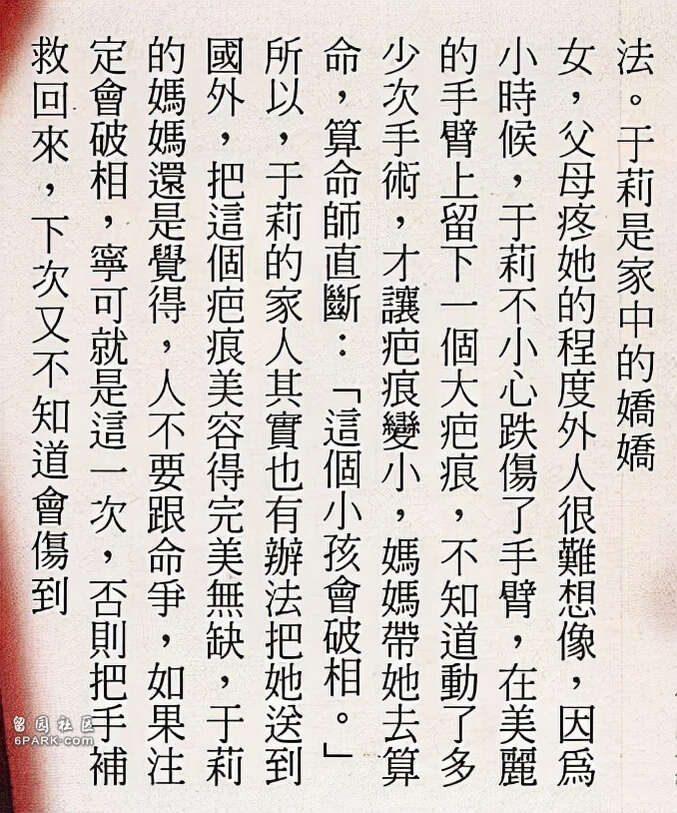 法。于莉是家中的嬌嬌
女，父母疼她的程度外人很難想像，因為
小時候，于莉不小心跌傷了手臂，在美麗
的手臂上留下一個大疤痕，不知道動了多
少次手術，才讓疤痕變小，媽媽帶她去算
命，算命師直斷：「這個小孩會破相。」
所以，于莉的家人其實也有辦法把她送到
國外，把這個疤痕美容得完美無缺，于莉
的媽媽還是覺得，人不要跟命爭，如果注
定會破相，寧可就是這一次，否則把手補
救回來，下次又不知道會傷到
留园社区
6PARK.com